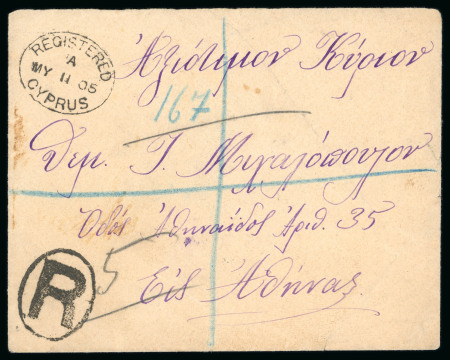 REGISTERED
A
MY 11 05
CYPRUS
Ἀξιότιμον Κύριον
167
Δημ. Ι. Μιχαλόπουλον
Ὁδὸς Ἀθηναΐδος Ἀριθ. 35
R
5
Εἰς Ἀθήνας